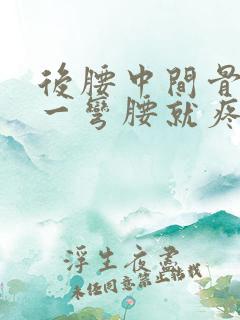 後腰中間骨
一彎腰就疼
浮生夜盡
未經同意禁止轉載